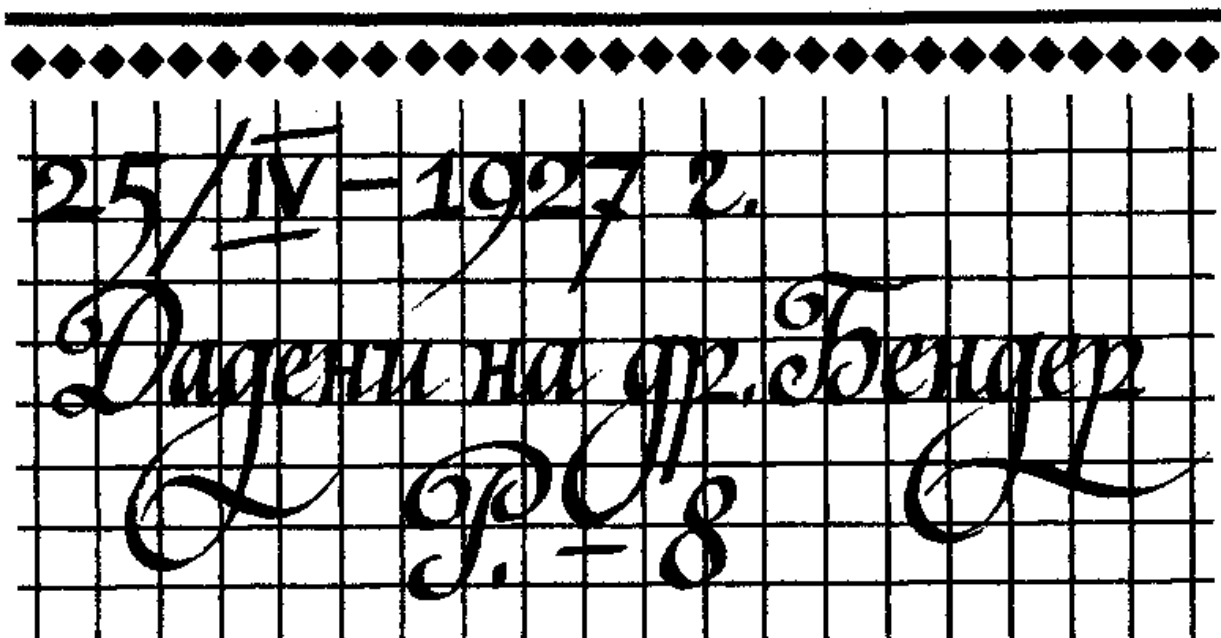 25/IV – 1927 г.
Дадени на др. Бендер
Р. – 8